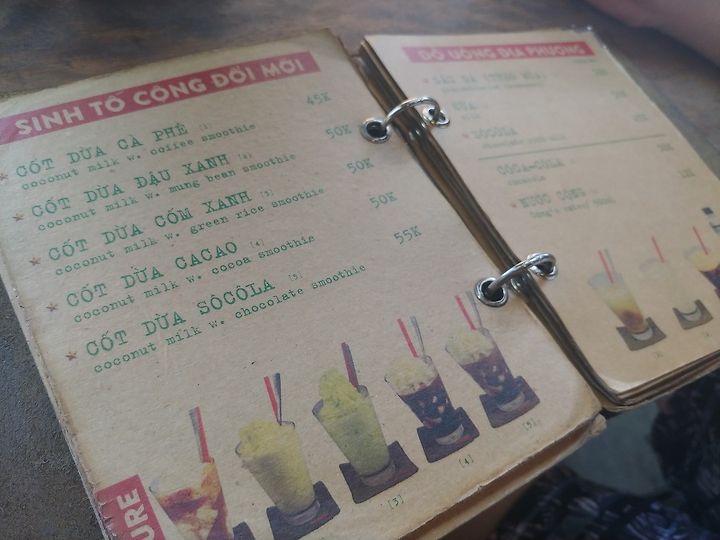 SINH TỐ CỘNG ĐỔI MỚI
CỐT DỪA CÀ PHÊ [1] 45K
coconut milk w. coffee smoothie
CỐT DỪA ĐẬU XANH [2] 50K
coconut milk w. mung bean smoothie
CỐT DỪA CỐM XANH [3] 50K
coconut milk w. green rice smoothie
CỐT DỪA CACAO [4] 50K
coconut milk w. cocoa smoothie
CỐT DỪA SÔCÔLA [5] 55K
coconut milk w. chocolate smoothie
[3]
[4]
[5]
URE
ĐỒ UỐNG ĐỊA PHƯƠNG
SÔCÔLA
COCA-COLA